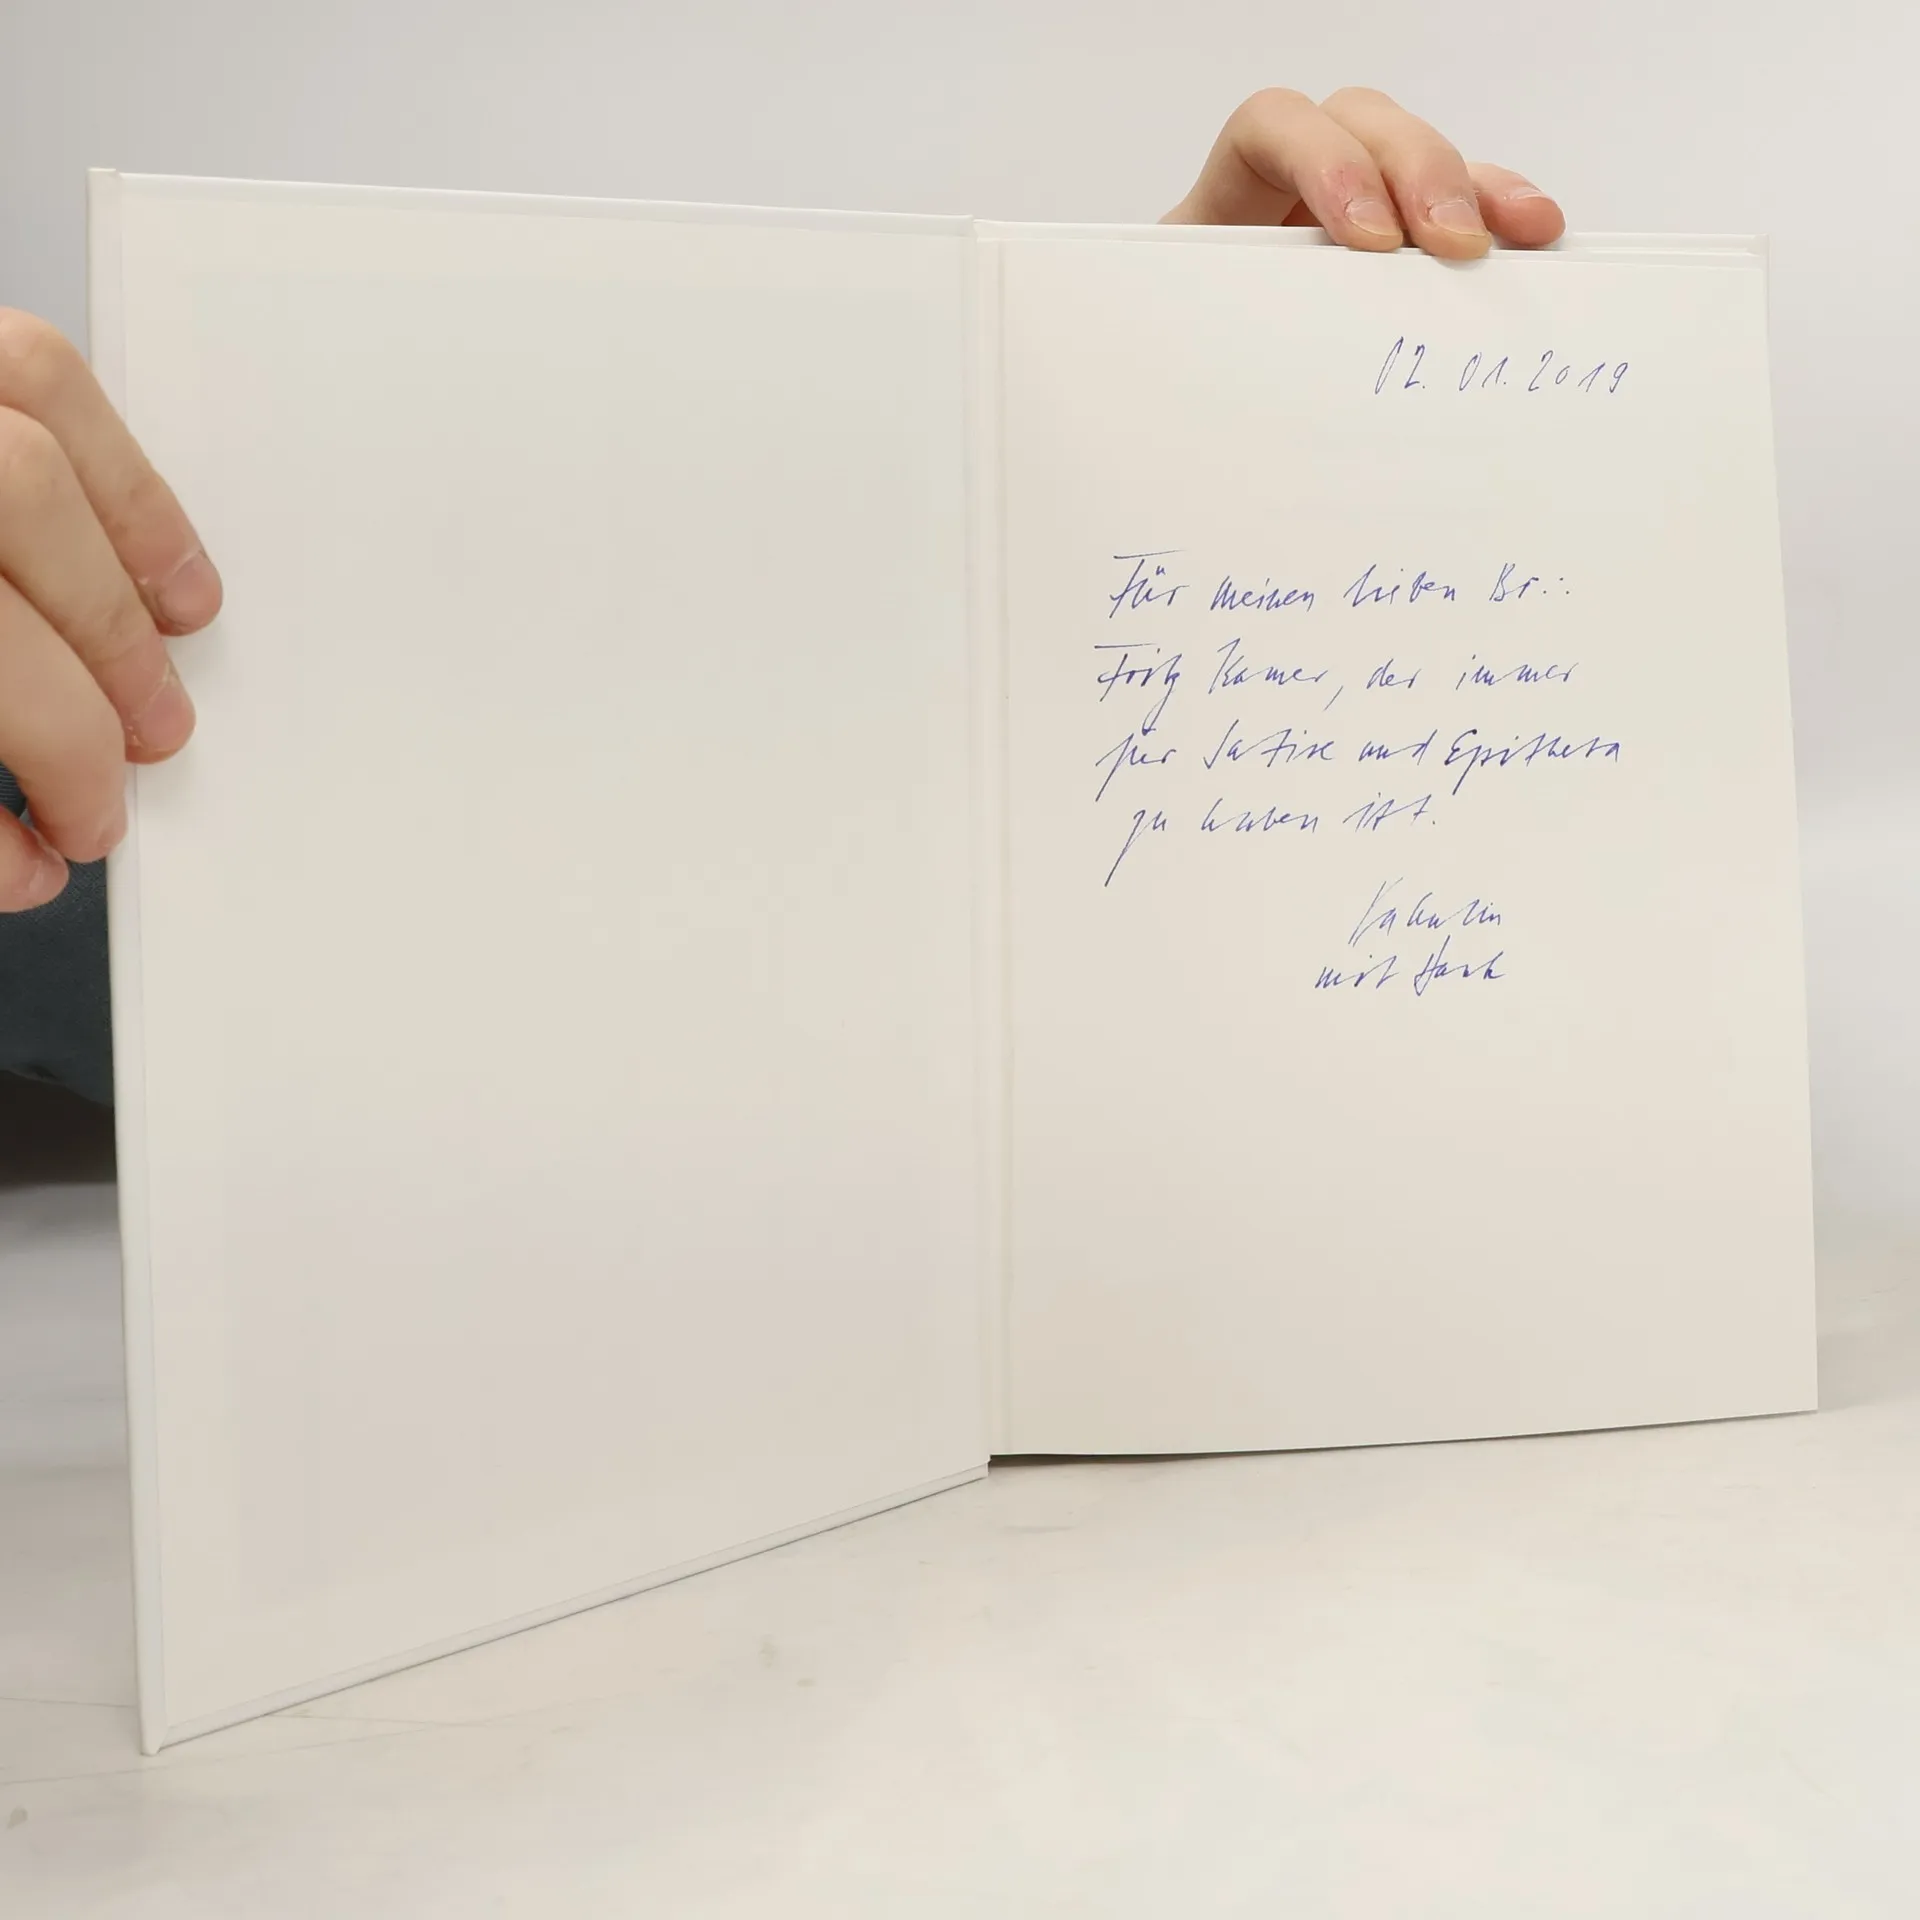 02. 01. 2019
Für meinen lieben Br∴
Fritz Kamer, der immer
für Satire und Epitheta
zu haben ist.
mit Dank